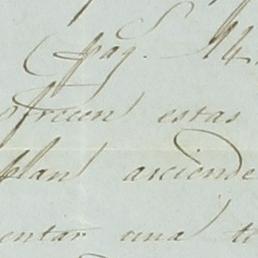 (pag. 14.
ofrecen estas
plan asciende
entar una